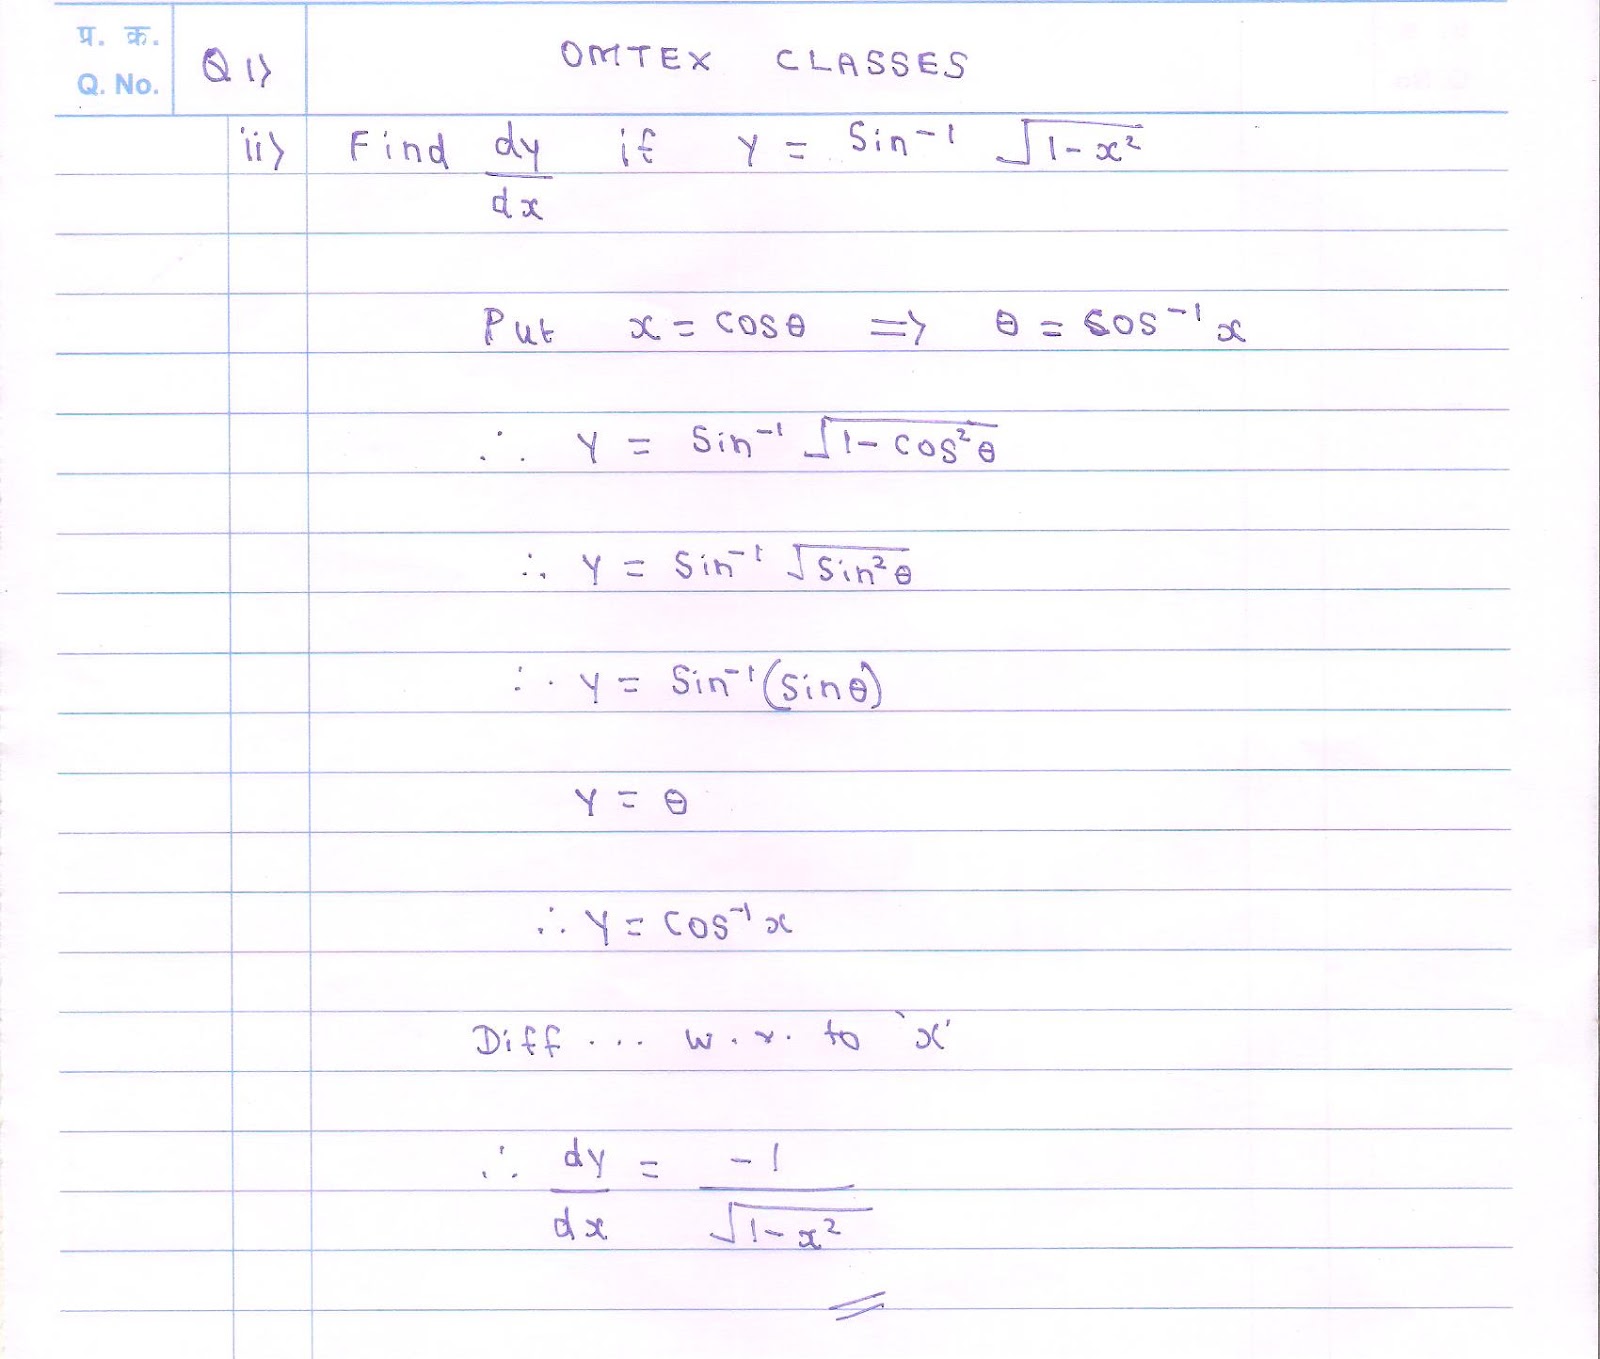 प्र. क्र.
Q. No.
Q 1)
OMTEX CLASSES
ii) Find dy/dx if y = Sin⁻¹ √1-x²
Put x = cosθ => θ = cos⁻¹ x
∴ y = Sin⁻¹ √1-cos²θ
∴ y = Sin⁻¹ √Sin²θ
∴ y = Sin⁻¹(Sinθ)
y = θ
∴ y = cos⁻¹x
Diff ... w.r. to 'x'
∴ dy/dx = -1/√1-x²